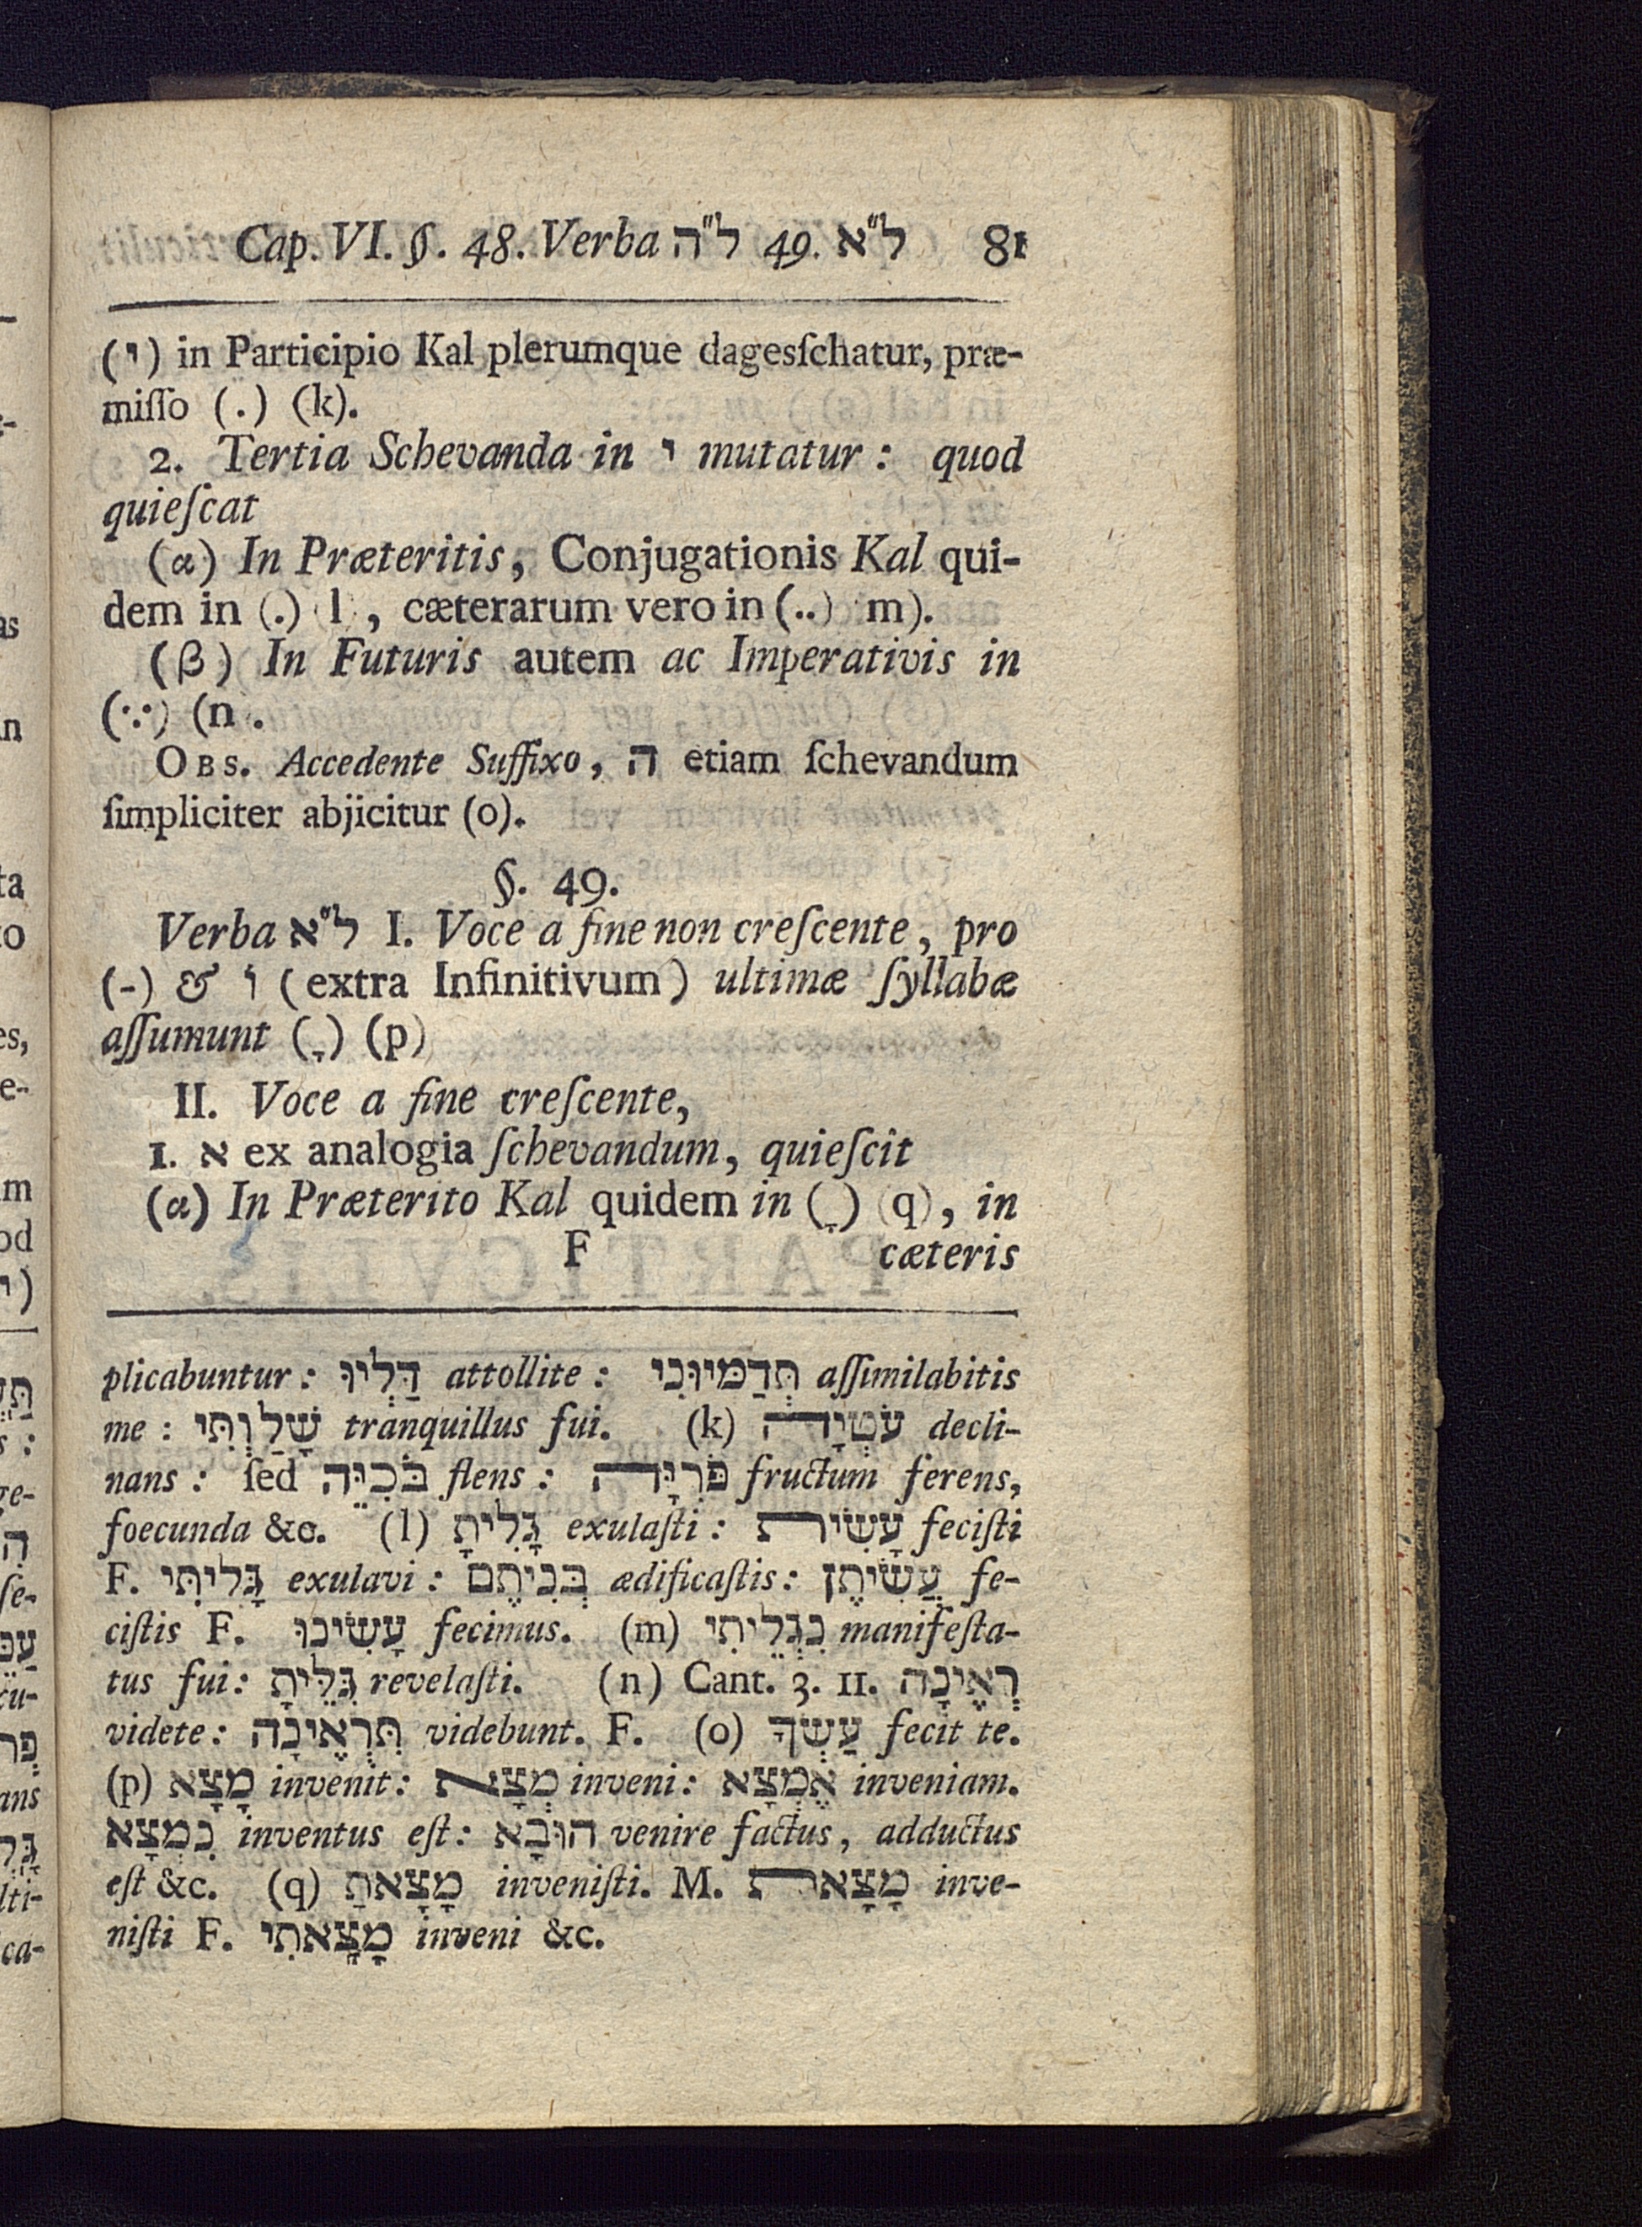 Cap. VI. §. 48. Verba ל"ה 49. ל"א 81
(י) in Participio Kal plerumque dagesſchatur, præ-
miſſo (.) (k).
2. Tertia Schevanda in י mutatur: quod
quieſcat
(α) In Præteritis, Conjugationis Kal qui-
dem in (.) (l), cæterarum vero in (..) (m).
(β) In Futuris autem ac Imperativis in
(∵) (n).
OBS. Accedente Suffixo, ה etiam ſchevandum
ſimpliciter abjicitur (o).
§. 49.
Verba ל"א I. Voce a fine non creſcente, pro
(-) & וֹ (extra Infinitivum) ultimæ ſyllabæ
aſſumunt (ָ) (p)
II. Voce a fine creſcente,
1. א ex analogia ſchevandum, quieſcit
(α) In Præterito Kal quidem in (ָ) (q), in
F cæteris
plicabuntur: דַּלְיוּ attollite: תְּדַמּיוּנִי aſſimilabitis
me: שָׁלַוְתִּי tranquillus fui. (k) עֹטְיָה decli-
nans: ſed בֹּכִיֵּה flens: פֹּרִיָּה fructum ferens,
foecunda &c. (l) גָּלִיתָ exulaſti: עָשִׂית feciſti
F. גָּלִיתִּי exulavi: בְּנִיתֶם ædificaſtis: עֲשִׂיתֶן fe-
ciſtis F. עָשִׂינוּ fecimus. (m) נִגְלֵיתִי manifeſta-
tus fui: גִּלֵּיתָ revelaſti. (n) Cant. 3. 11. רְאֶינָה
videte: תִּרְאֶינָה videbunt. F. (o) עָשְׂךָ fecit te.
(p) מָצָא invenit: מְצָא inveni: אֶמְצָא inveniam.
נִמְצָא inventus eſt: הוּבָא venire factus, adductus
eſt &c. (q) מָצָאתַ inveniſti. M. מָצָאת inve-
niſti F. מָצָאתִי inveni &c.